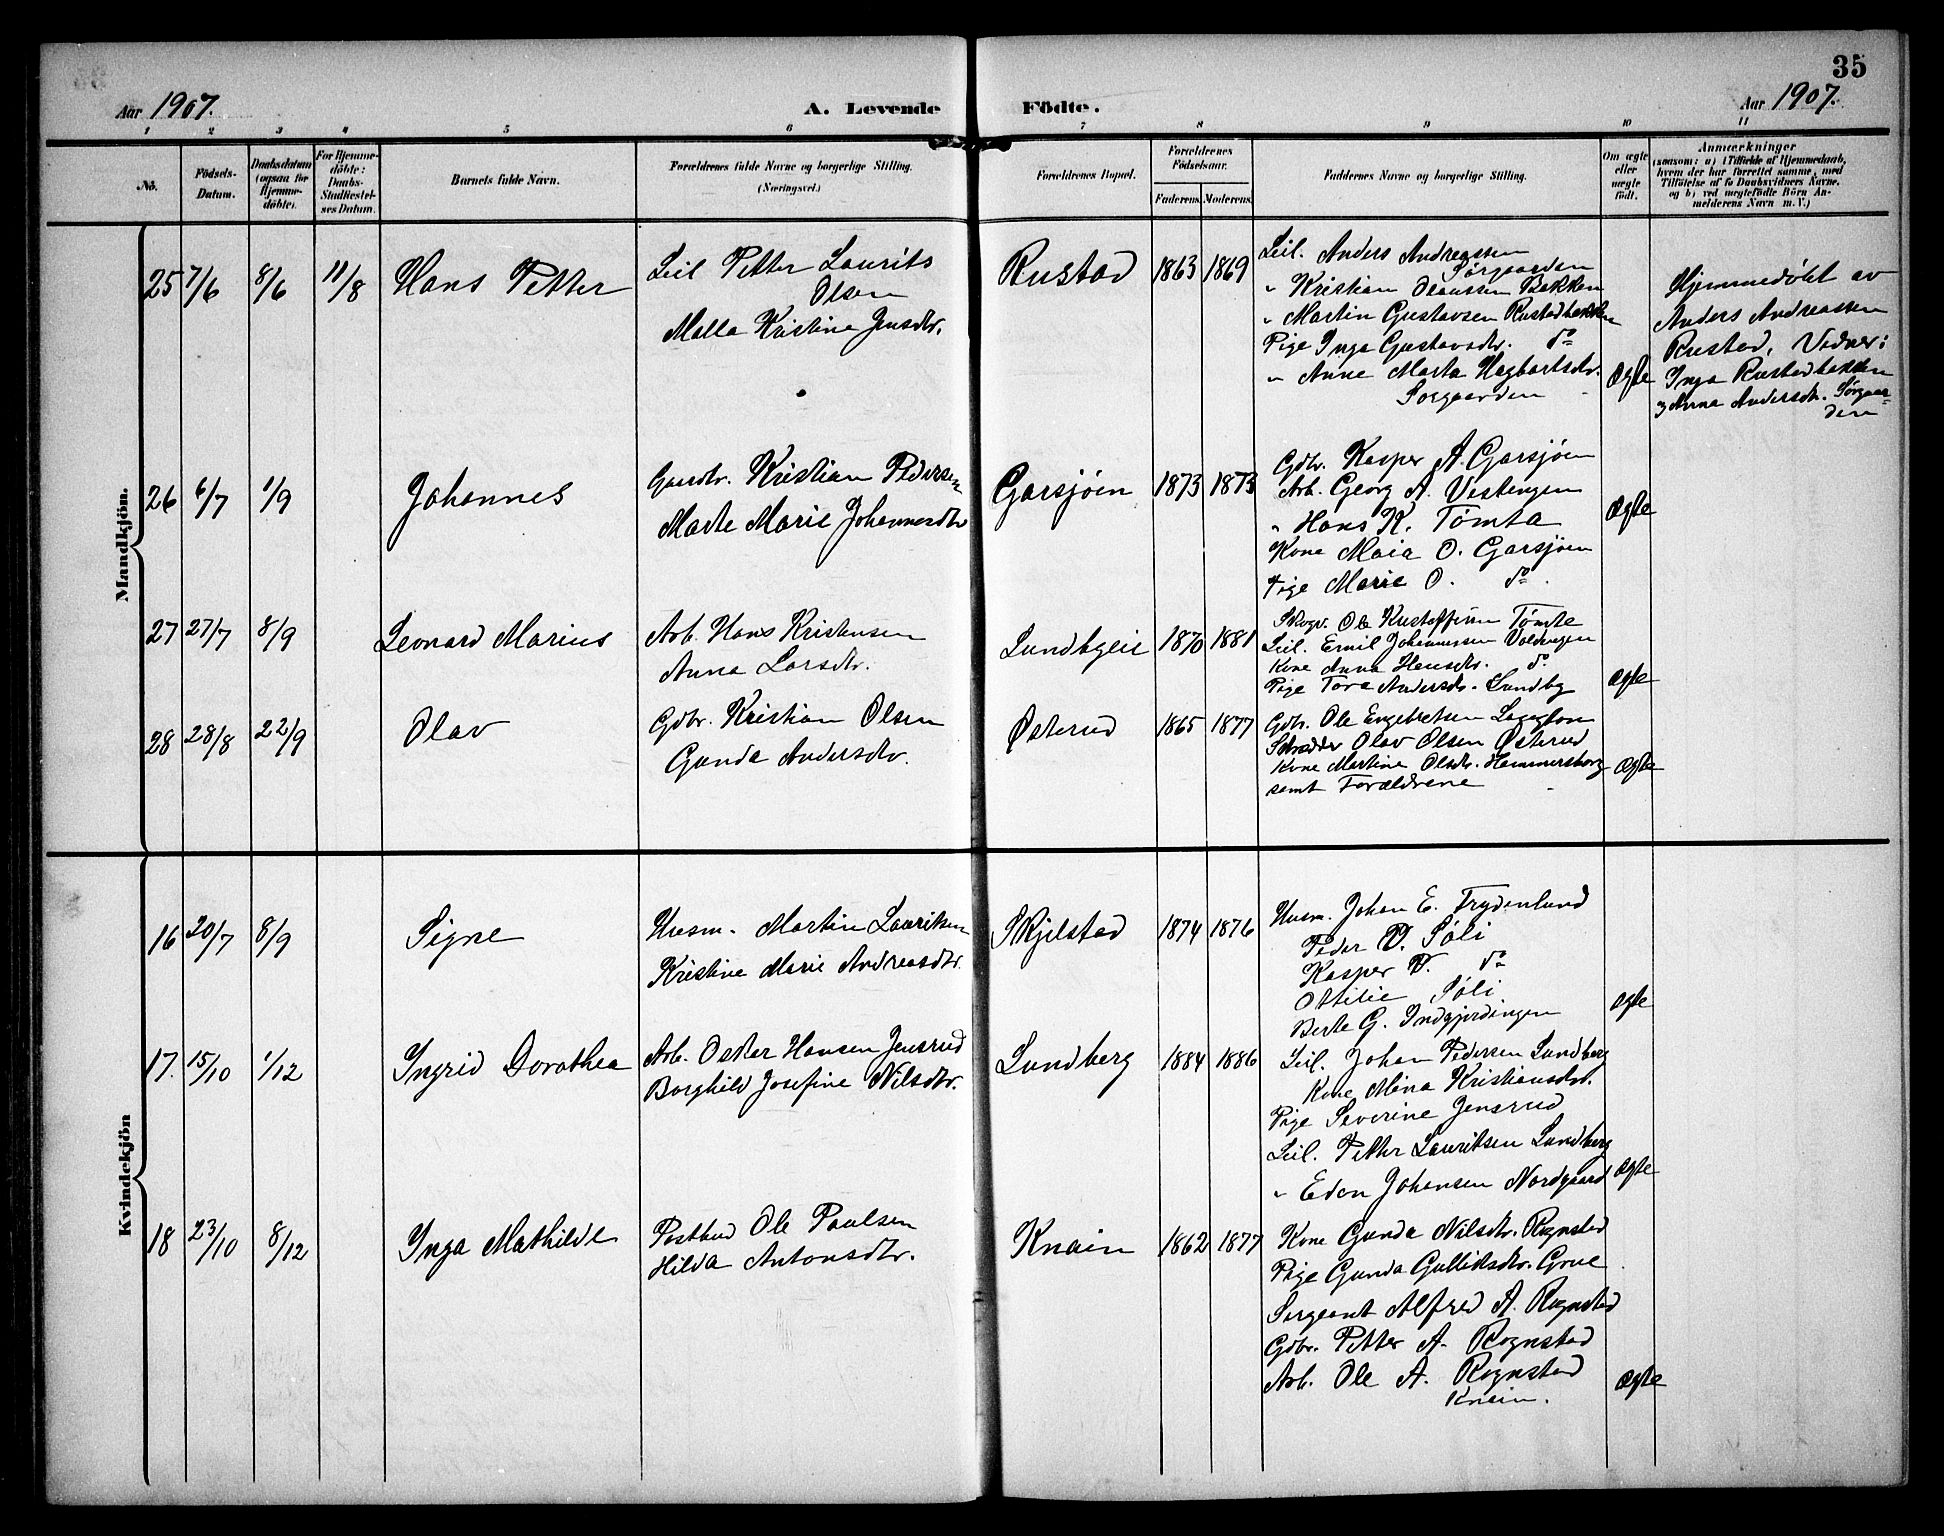 35
Aar 1907.
A. Levende Födte.
Aar 1907.
1 2 3 4 5 6 7 8 9 10 11
No.
Födsels-
Datum.
Daabsdatum
(ogsaa for
Hjemme-
döbte).
For Hjemme-
döbte:
Daabs-
Stadfæstel-
ses Datum.
Barnets fulde Navn.
Forældrenes fulde Navne og borgerlige Stilling.
(Næringsvei.)
Forældrenes Bopæl.
Forældrenes
Födselsaar.
Faderens. Moderens.
Faddernes Navne og borgerlige Stilling.
Om ægte
eller
uægte
födt.
Anmærkninger
(saasom: a) i Tilfælde af Hjemmedaab,
hvem der har forrettet samme, med
Tilföielse af to Daabsvidners Navne,
og b) ved uægtefödte Börn An-
melderens Navn m. V.)
Mandkjön.
25 7/6 8/6 11/8 Hans Petter
Leil Petter Laurits
Olsen
Malla Kristine Jensdtr.
Rustad 1863 1869
Leil. Anders Andreassen
Sørgaarden
" Kristian Olaussen Bakken
" Martin Gustavsen Rustadbakken
Pige Inga Gustavsdtr. do
" Anne Marta Hagbartsdtr.
Sørgaarden
Ægte
Hjemmedøbt av
Anders Andreassen
Rustad, Vidner:
Inga Rustadbakken
og Anna Andersdtr. Sørgaar-
den
26 6/7 1/9 Johannes
Gaardbr. Kristian Pedersen
Marte Marie Johannesdtr
Garsjøen 1873 1873
Gdbr. Kasper A. Garsjøen
Arb. Georg A. Vestengen
" Hans K. Tømta
Kone Maia O. Garsjøen
Pige Marie O. do.
Ægte
27 27/7 8/9 Leonard Marius
Arb. Hans Kristensen
Anna Larsdtr.
Lundbyeie 1870 1881
Skogv. Ole Kristoffersen Tømte
Leil. Emil Johannessen Voldengen
Kone Anna Hansdtr. do.
Pige Tora Andersdtr. Lundby
Ægte
28 28/8 22/9 Olav
Gdbr. Kristian Olsen
Gunda Andersdtr.
Østerud 1865 1877
Gdbr. Ole Engebretsen
Skrædder Olav Olsen Østerud
Kone Martine Olsdtr. Hammersborg
samt Forældrene
Ægte
Kvindekjön
16 20/7 8/9 Signe
Husm. Martin Lauritsen
Kristine Marie Andreasdtr.
Skjelstad 1874 1876
Husm. Johan E. Frydenlund
Peder P. Søli
Kasper P. do
Ottilie Søli
Berte G. Indgjerdingen
ægte
17. 15/10 1/12 Ingrid Dorothea
Arb. Oskar Hansen Jensrud
Borghild Josefine Nilsdtr.
Lundberg 1884 1886
Leil. Johan Pedersen Lundberg
Kone Mina Kristiansdtr.
Pige Severine Jensrud
Leil. Petter Lauritsen Lundberg
" Edon Johansen Nordgaard
Ægte
18 23/10 8/12 Inga Mathilde
Postbud Ole Paulsen
Hilda Antonsdtr.
Knain 1862 1877
Kone Gunda Nilsdtr. Rognstad
Pige Gunda Gulliksdtr. Grue
Sergeant Alfred A. Rognstad
Gdbr. Petter A. Rognstad
Arb. Ole A. Rognstad
Knain.
Ægte